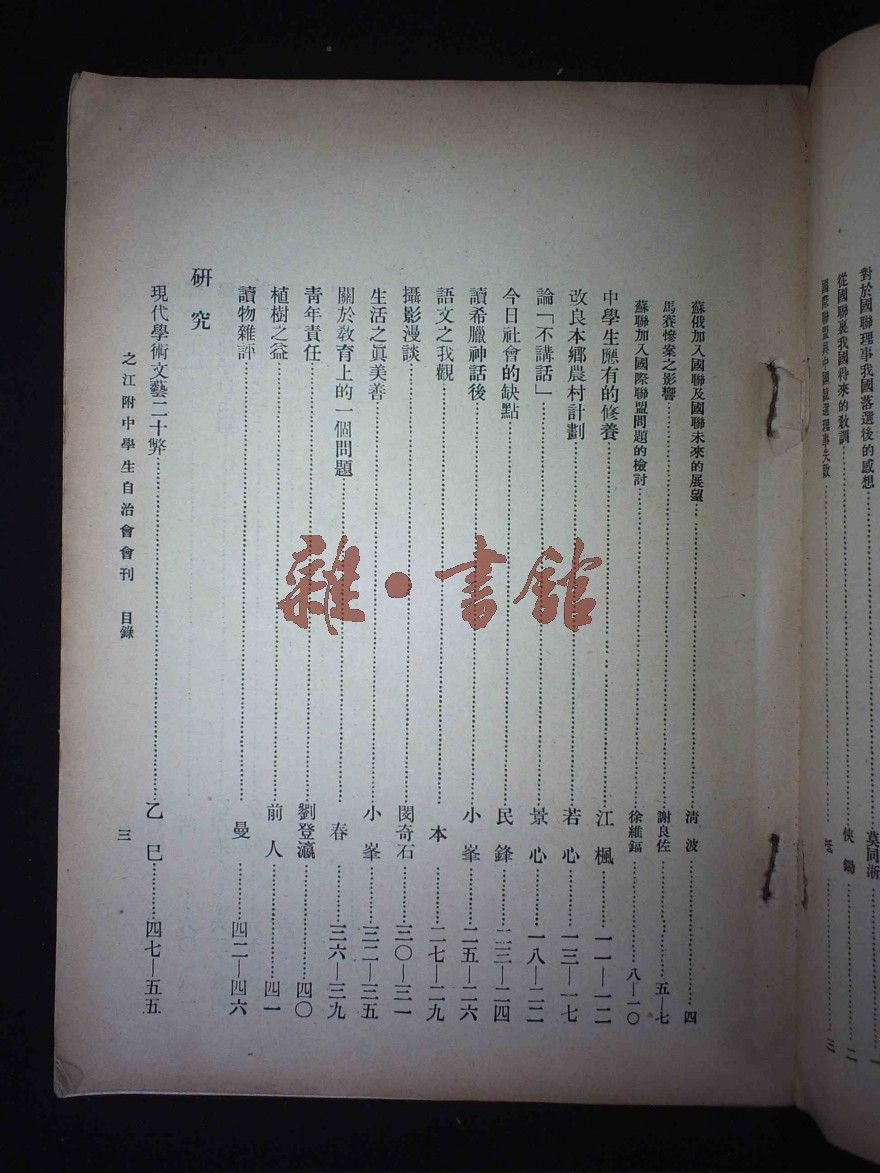 對於國聯理事我國落選後的感想 莫同淅 一
從國聯裏我國得來的敎訓 俠 二
國際聯盟與中國競選理事失敗 三
蘇俄加入國聯及國聯未來的展望 清波 四
馬賽慘案之影響 謝良佐 五—七
蘇聯加入國際聯盟問題的檢討 徐維鎘 八—一〇
中學生應有的修養 江楓 一一—一二
改良本鄉農村計劃 若心 一三—一七
論「不講話」 景心 一八—二二
今日社會的缺點 民鋒 二三—二四
讀希臘神話後 小峯 二五—二六
語文之我觀 本 二七—二九
攝影漫談 閔奇石 三〇—三一
生活之眞美善 小峯 三二—三五
關於敎育上的一個問題 春 三六—三九
靑年責任 劉登瀛 四〇
植樹之益 前人 四一
讀物雜評 曼 四二—四六
研究
現代學術文藝二十弊 乙巳 四七—五五
之江附中學生自治會會刊 目錄 三
雜·書館